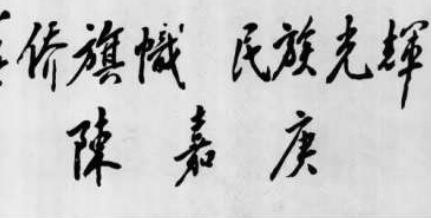 华侨旗幟 民族光輝
陳 嘉 庚